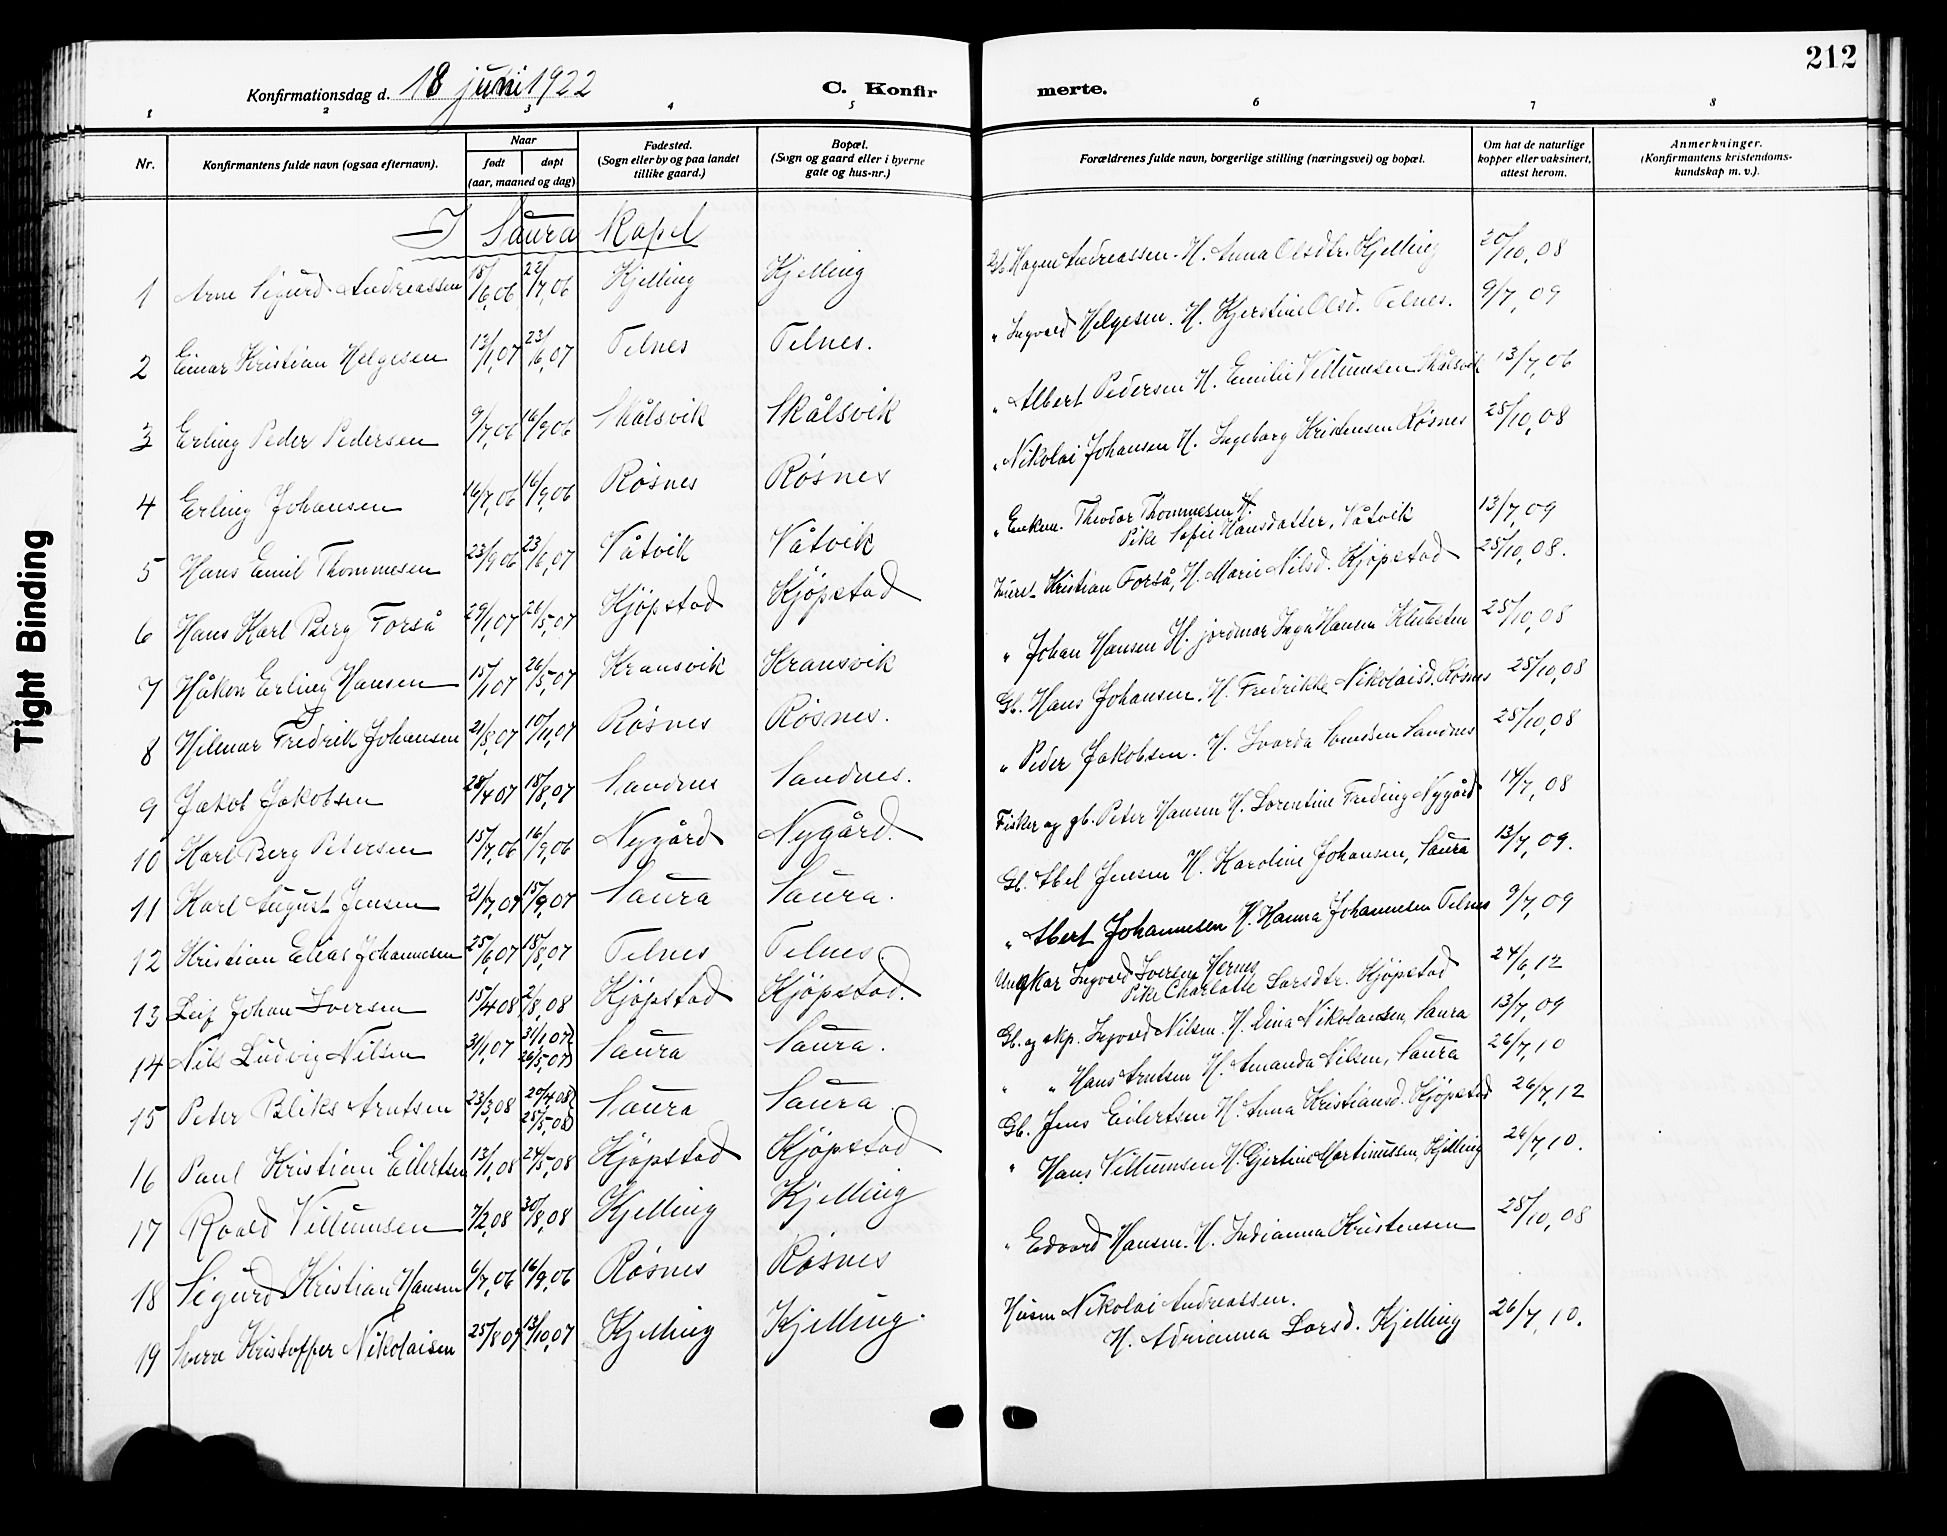 212
Konfirmationsdag d. 18 juni 1922
C. Konfir merte.
1 2 3 4 5 6 7 8
Nr.
Konfirmantens fulde navn (ogsaa efternavn).
Naar
født døpt
(aar, maaned og dag)
Fødested.
(Sogn eller by og paa landet
tillike gaard.)
Bopæl.
(Sogn og gaard eller i byerne
gate og hus-nr.)
Forældrenes fulde navn, borgerlige stilling (næringsvei) og bopæl.
Om hat de naturlige
kopper eller vaksinert,
attest herom.
Anmerkninger.
(Konfirmantens kristendoms-
kundskap m. v.)
I Saura Kapel
1 Arne Sigurd Andreassen 18/6,06 22/7,06 Kjelling Kjelling Gb. Hagen Andreassen. H. Anna Olsdtr. Kjelling 20/10,08
2 Einar Kristian Helgesen 13/1,07 23/6,07 Telnes Telnes. " Ingvald Helgesen. H. Kjerstine Olsd. Telnes. 9/7,09
3 Erling Peder Pedersen 9/7,06 16/9,06 Skålsvik Skålsvik " Albert Pedersen H. Emilie Villumsen Skålsvik 13/7,06
4 Erling Johansen 16/7,06 16/9,06 Røsnes Røsnes " Nikolai Johansen H. Ingeborg Kristensen Røsnes 25/10,08
5 Hans Emil Thommesen 23/9,06 23/6,07 Våtvik Våtvik " Enkem. Theodor Thommesen H.
Pike Sofie Hansdatter, Våtvik 13/7,09
6 Hans Karl Berg Forså 29/1,07 26/5,07 Kjøpstad Kjøpstad Kristian Forså, H. Marie Nilsd. Kjøpstad 25/10,08.
7 Håkon Erling Hansen 15/1,07 26/5,07 Kransvik Kransvik " Johan Hansen H. jordmor Inga Hansen 25/10,08
8 Hilmar Fredrik Johansen 21/8,07 10/11,07 Røsnes Røsnes. Gb. Hans Johansen. H. Fredrikke Nikolaisd. Røsnes 25/10,08
9 Jakob Jakobsen 28/4,07 18/8,07 Sandnes Sandnes. " Peder Jakobsen. H. Sandnes 25/10,08
10 Karl Berg Petersen 15/7,06 16/9,06 Nygård Nygård. Fisker og gb. Peter Hansen H. Lorentine Nygård 14/7,08
11 Karl August Jensen 21/7,07 15/9,07 Saura Saura. Gb. Abel Jensen H. Karoline Johansen, Saura 13/7,09.
12 Kristian Elias Johannesen 25/6,07 18/8,07 Telnes Telnes. " Albert Johannesen H. Hanna Johannesen Telnes 9/7,09
13 Leif Johan Iversen 15/4,08 2/8,08 Kjøpstad Kjøpstad. Ungkar Ingvald Iversen Hernes
Pike Charlotte Larsdtr. Kjøpstad 24/6,12
14 Nils Ludvig Nilsen 31/1,07 31/1,07)
26/5,07) Saura Saura. Gb. og skp. Ingvald Nilsen. H. Lina Nikolaisen, Saura 13/7,09
15 Peter Bliks Arntsen 23/3,08 20/4,08)
25/5,08) Saura Saura. " " Hans Arntsen H. Amanda Nilsen, Saura 26/7,10
16 Paul Kristian Eilertsen 13/1,08 24/5,08 Kjøpstad Kjøpstad Gb. Jens Eilertsen H. Anna Kristiansd. Kjøpstad 26/7,12
17 Roald Villumsen 7/2,08 30/8,08 Kjelling Kjelling " Hans Villumsen H. Gjertine Martinussen, Kjelling 26/7,10.
18 Sigurd Kristian Hansen 6/7,06 16/9,06 Røsnes Røsnes " Edvard Hansen. H. Indianna Kristensen 25/10,08
19 Sverre Kristoffer Nikolaisen 25/8,07 13/10,07 Kjelling Kjelling. Husm Nikolai Andreassen.
H. Adrianna Larsd. Kjelling 26/7,10.
Tight Binding